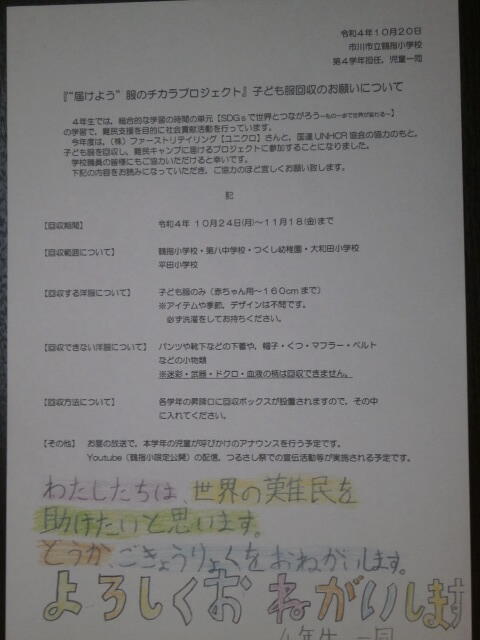 令和4年10月20日
市川市立鶴指小学校
第4学年担任、児童一同
『“届けよう”服のチカラプロジェクト』子ども服回収のお願いについて
4年生では、総合的な学習の時間の単元【SDGsで世界とつながろう～もの一歩で世界が変わる～】
の学習で、難民支援を目的に社会貢献活動を行っています。
今年度は、(株)ファーストリテイリング【ユニクロ】さんと、国連UNHCR協会の協力のもと、
子ども服を回収し、難民キャンプに届けるプロジェクトに参加することになりました。
学校職員の皆様にもご協力いただけると幸いです。
下記の内容をお読みになっていただき、ご協力のほど宜しくお願い致します。
記
【回収期間】 令和4年 10月24日(月)～11月18(金)まで
【回収範囲について】 鶴指小学校・第八中学校・つくし幼稚園・大和田小学校
平田小学校
【回収する洋服について】 子ども服のみ(赤ちゃん用～160cmまで)
※アイテムや季節、デザインは不問です。
必ず洗濯をしてお持ちください。
【回収できない洋服について】 パンツや靴下などの下着や、帽子・くつ・マフラー・ベルト
などの小物類
※迷彩・武器・ドクロ・血液の柄は回収できません。
【回収方法について】 各学年の昇降口に回収ボックスが設置されますので、その中
に入れてください。
【その他】 お昼の放送で、本学年の児童が呼びかけのアナウンスを行う予定です。
Youtube(鶴指小限定公開)の配信、つるさし祭での宣伝活動等が実施される予定です。
わたしたちは、世界の難民を
助けたいと思います。
どうか、ごきょうりょくをおねがいします。
よろしくおねがいします
4年生 一同